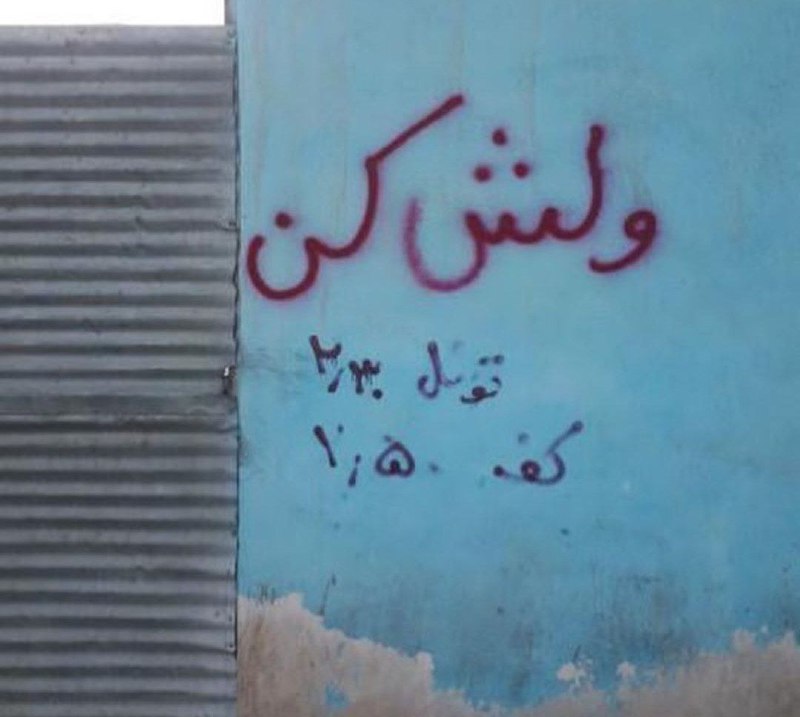 ولش کن
تونل ۲٫۳۰
کف ۱٫۵۰